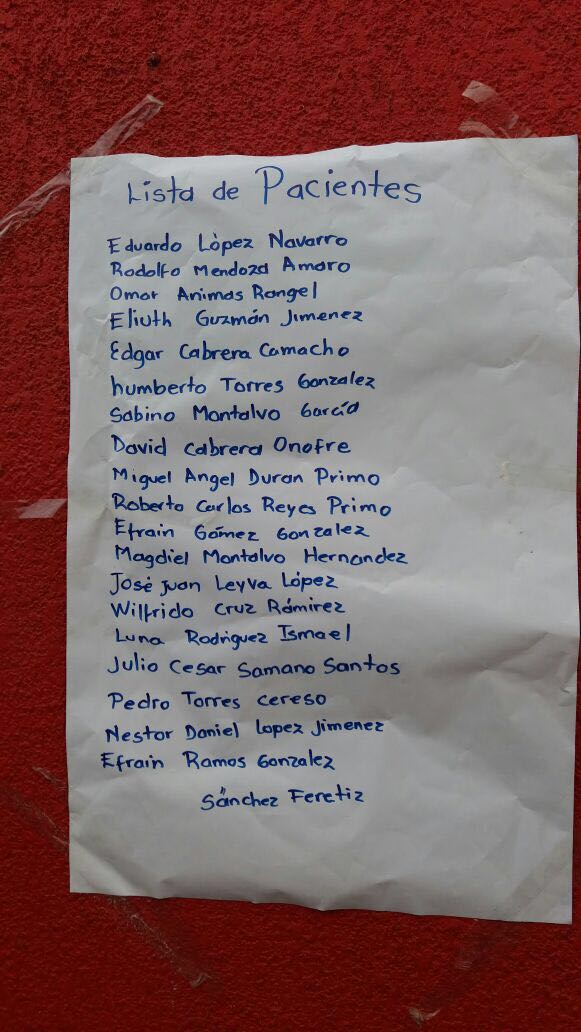 Lista de Pacientes
Eduardo López Navarro
Rodolfo Mendoza Amaro
Omar Animas Rangel
Eliuth Guzmán Jimenez
Edgar Cabrera Camacho
humberto Torres Gonzalez
Sabino Montalvo García
David Cabrera Onofre
Miguel Angel Duran Primo
Roberto Carlos Reyes Primo
Efrain Gómez Gonzalez
Magdiel Montalvo Hernandez
José Juan Leyva López
Wilfrido Cruz Rámirez
Luna Rodriguez Ismael
Julio Cesar Samano Santos
Pedro Torres cereso
Nestor Daniel Lopez Jimenez
Efrain Ramos Gonzalez
Sánchez Feretiz